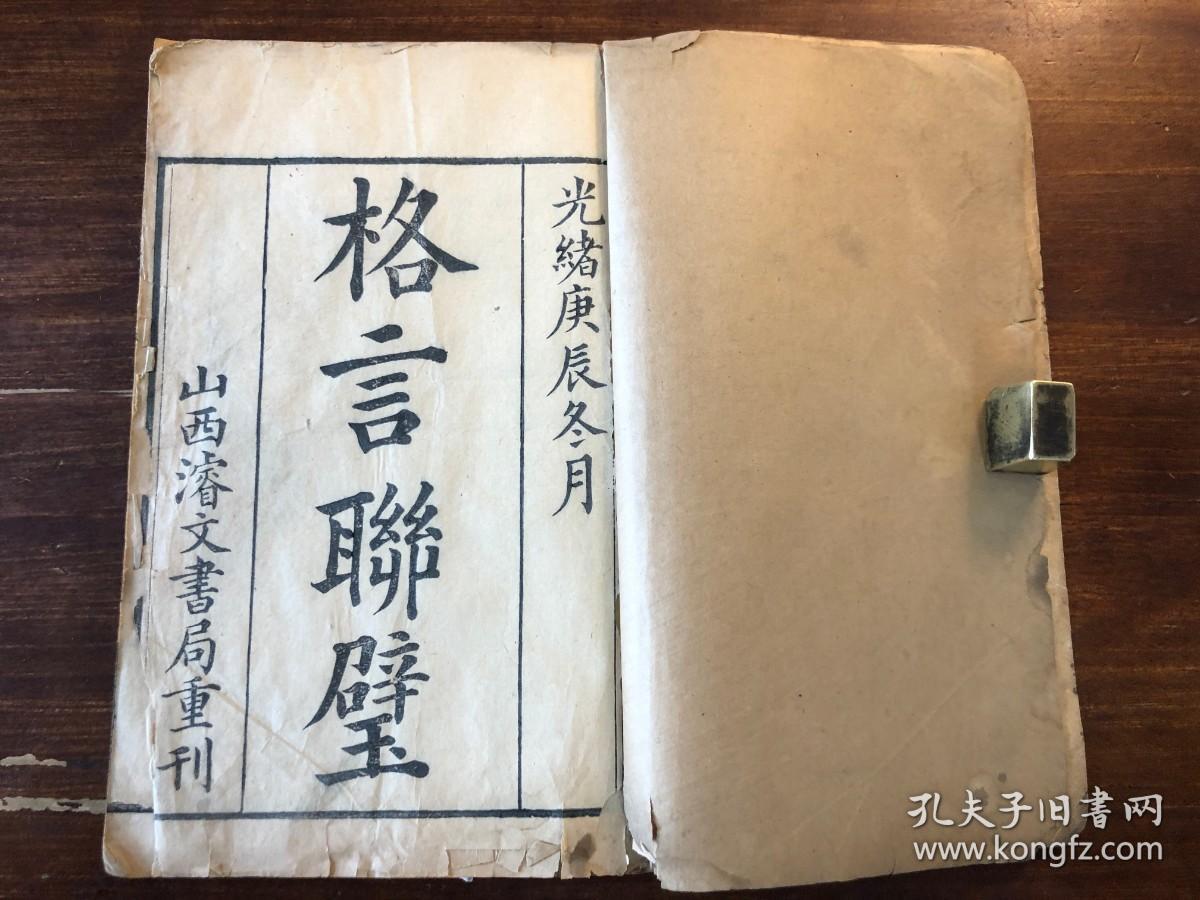 光緒庚辰冬月
格言聯璧
山西濬文書局重刊
孔夫子旧書网
www.kongfz.com